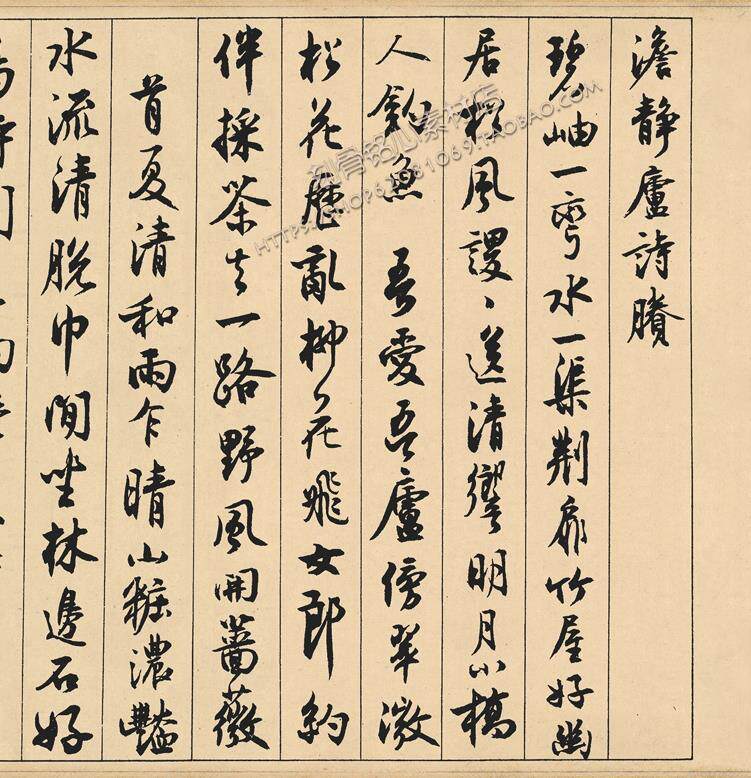 澹静廬詩賸
碧岫一彎水一渠荆扉竹屋好幽
居松風謖〻送清響明月小橋
人釣魚 吾愛吾廬傍翠微
松花歷亂柳花飛女郎約
伴採茶去一路野風開薔薇
首夏清和雨乍晴山粧濃豔
水流清脫巾閒坐林邊石好
刻骨铭心素材店